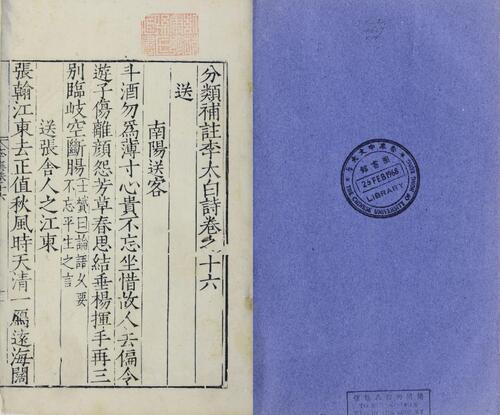 分類補註李太白詩卷之十六
送
南陽送客
斗酒勿爲薄寸心貴不忘坐惜故人去偏令
遊子傷離顔怨芳草春思結垂楊揮手再三
別臨岐空斷腸士贇曰論語久要
不忘平生之言
送張舍人之江東
張翰江東去正值秋風時天清一鴈遠海闊
香港中文大學
圖書館
29 FEB 1968
LIBRARY
THE CHINESE UNIVERSITY OF HONG KONG